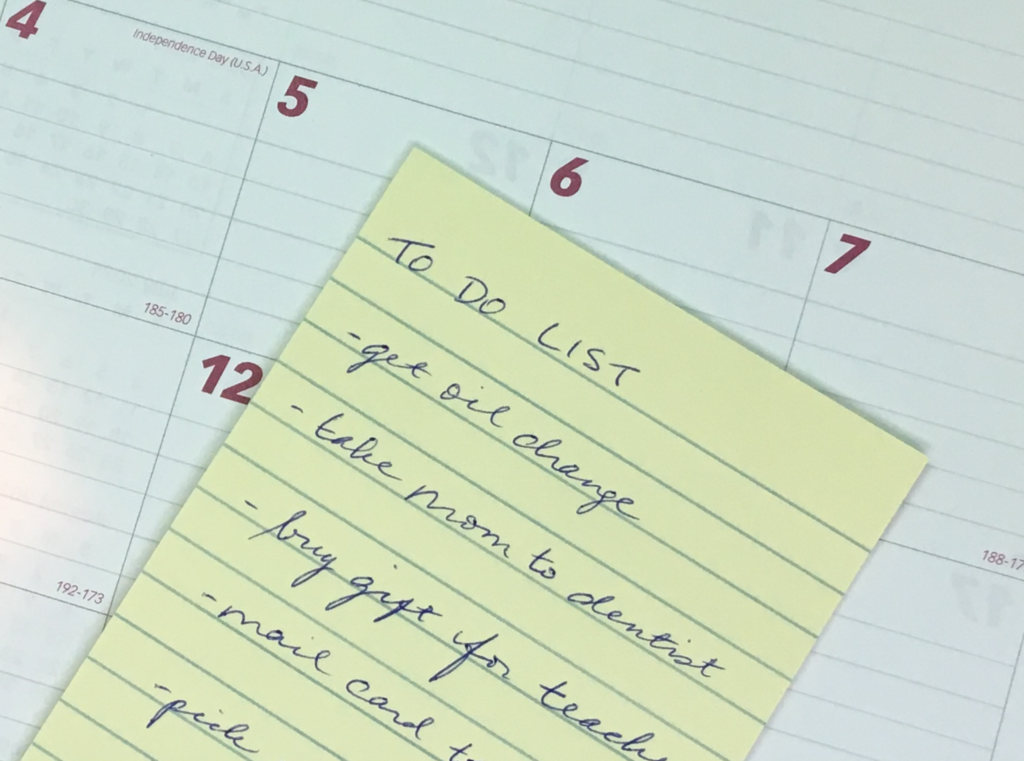 4
Independence Day (U.S.A.)
5
6
7
185-180
12
192-173
188-17
TO DO LIST
-get oil change
- take mom to dentist
- buy gift for teach
-mail card to
-pick